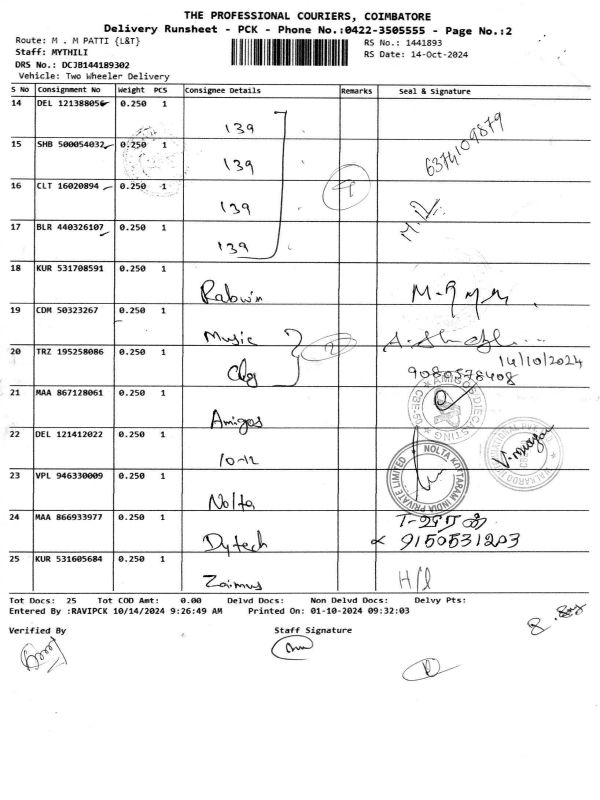 THE PROFESSIONAL COURIERS, COIMBATORE
Delivery Runsheet - PCK - Phone No.:0422-3505555 - Page No.:2
Route: M . M PATTI {L&T} RS No.: 1441893
Staff: MYTHILI RS Date: 14-Oct-2024
DRS No.: DCJB144189302
Vehicle: Two Wheeler Delivery
S No Consignment No Weight PCS Consignee Details Remarks Seal & Signature
14 DEL 121388056 0.250 1 139
15 SHB 500054032 0.250 1 139 6374109879
16 CLT 16020894 0.250 1 139
17 BLR 440326107 0.250 1 139
18 KUR 531708591 0.250 1
19 CDM 50323267 0.250 1 Music
14/10/2024
20 TRZ 195258086 0.250 1 9080578408
21 MAA 867128061 0.250 1 Amigos
22 DEL 121412022 0.250 1 10-12
23 VPL 946330009 0.250 1 Nolta
NOLTA KOTTARAM INDIA PRIVATE LIMITED
24 MAA 866933977 0.250 1 Dytech 9150531203
25 KUR 531605684 0.250 1
Tot Docs: 25 Tot COD Amt: 0.00 Delvd Docs: Non Delvd Docs: Delvy Pts:
Entered By :RAVIPCK 10/14/2024 9:26:49 AM Printed On: 01-10-2024 09:32:03
Verified By Staff Signature